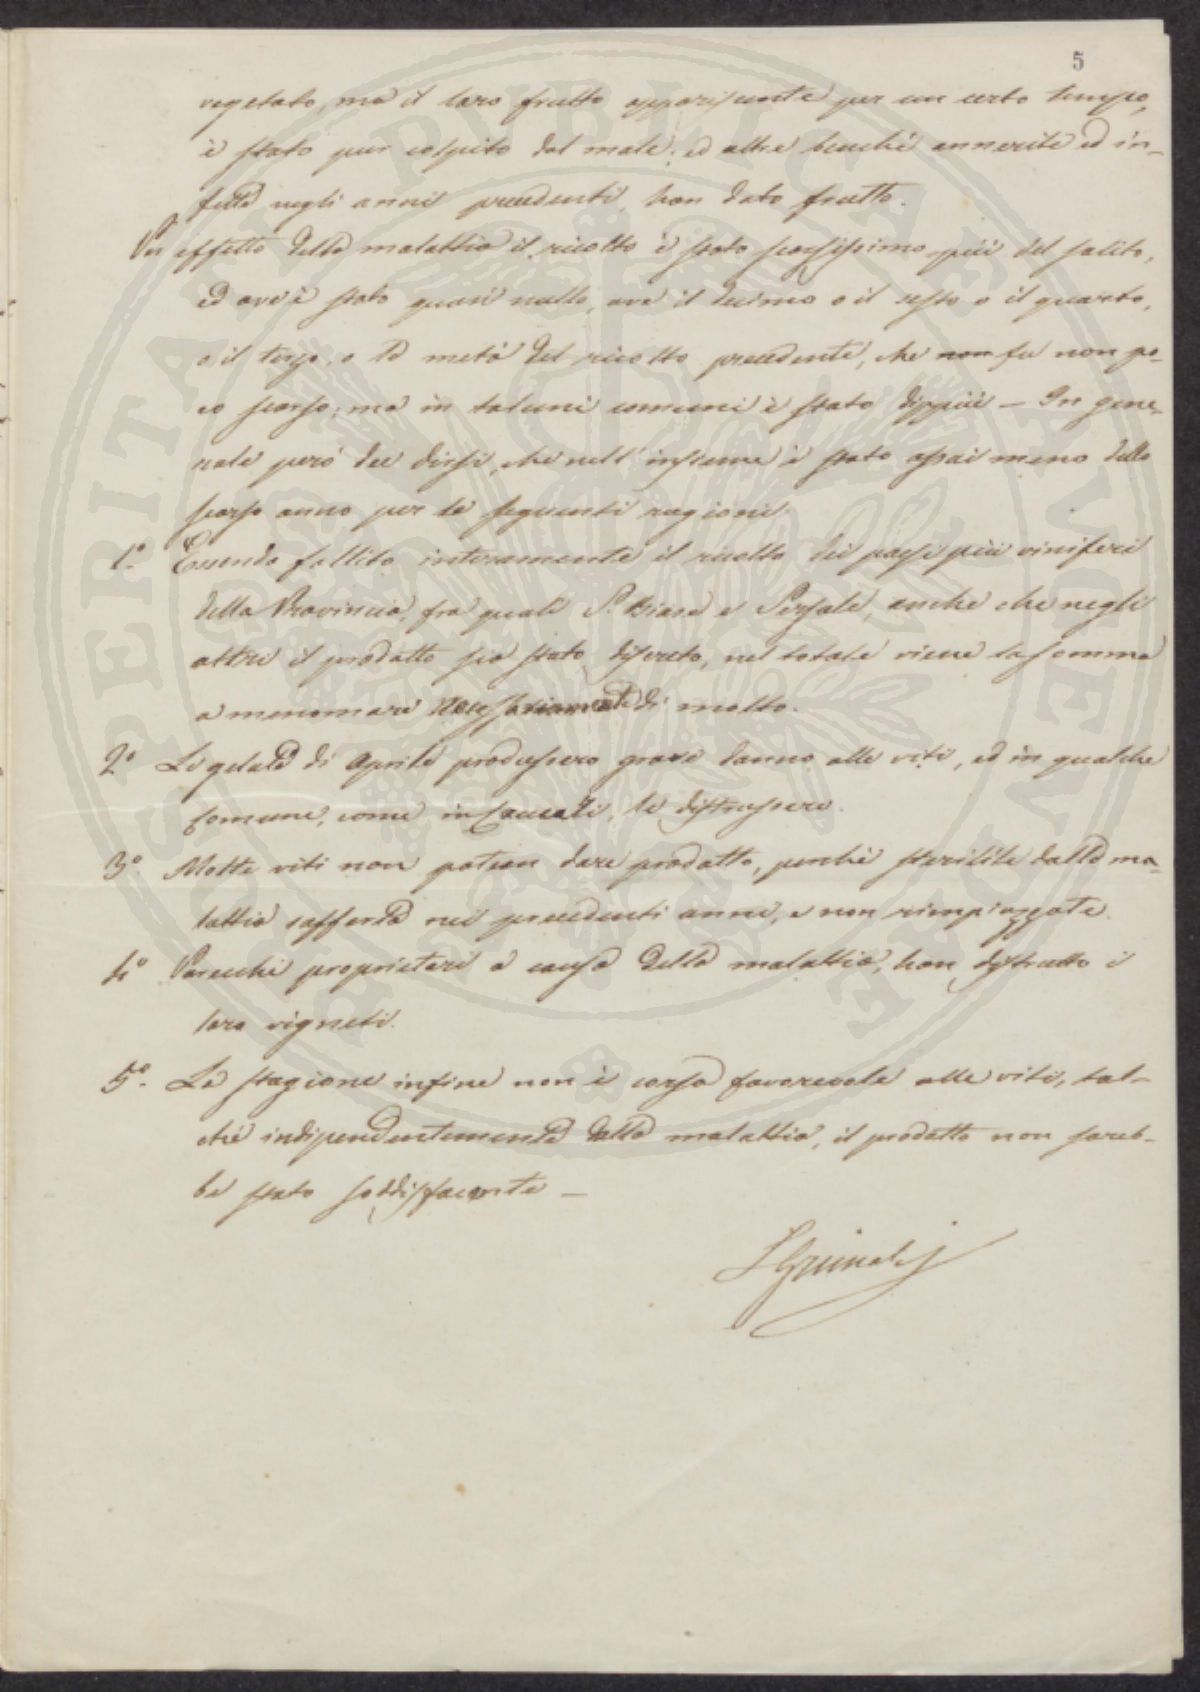 5
vegetato, ma il loro frutto appariscente per un certo tempo,
è stato pur colpito dal male; ed altre benchè annerite ed in-
fette negli anni precedenti, han dato frutto.
Per effetto della malattia il ricolto è stato scarsissimo più del solito,
ed ove è stato quasi nullo, ove il decimo o il sesto o il quarto,
o il terzo, o la metà del ricolto precedente, che non fu non po-
co scarso; ma in taluni comuni è stato dippiù — In gene-
rale però dee dirsi, che nell'insieme è stato assai meno dello
scorso anno per le seguenti ragioni.
1.° Essendo fallito interamente il ricolto dei paesi più viniferi
della Provincia, fra quali S. Biase e Sersale, anche che negli
altri il prodotto sia stato discreto, nel totale viene la somma
a menomare necessariamente di molto.
2.° Le gelate di Aprile produssero grave danno alle viti, ed in qualche
Comune, come in le distrussero.
3.° Molte viti non potean dare prodotto, perchè sterilite dalla ma-
lattia sofferta nei precedenti anni, e non rimpiazzate.
4.° Parecchi proprietari a causa della malattia, han distrutto i
loro vigneti.
5.° La stagione infine non è corsa favorevole alle viti, tal-
chè indipendentemente dalla malattia, il prodotto non sareb-
be stato soddisfacente —
L Grimaldi
PROSPERITATI PVBLICAE AVGENDAE